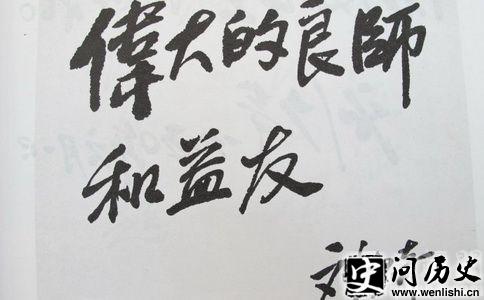 偉大的良師
和益友
史问历史
www.wenlishi.cn